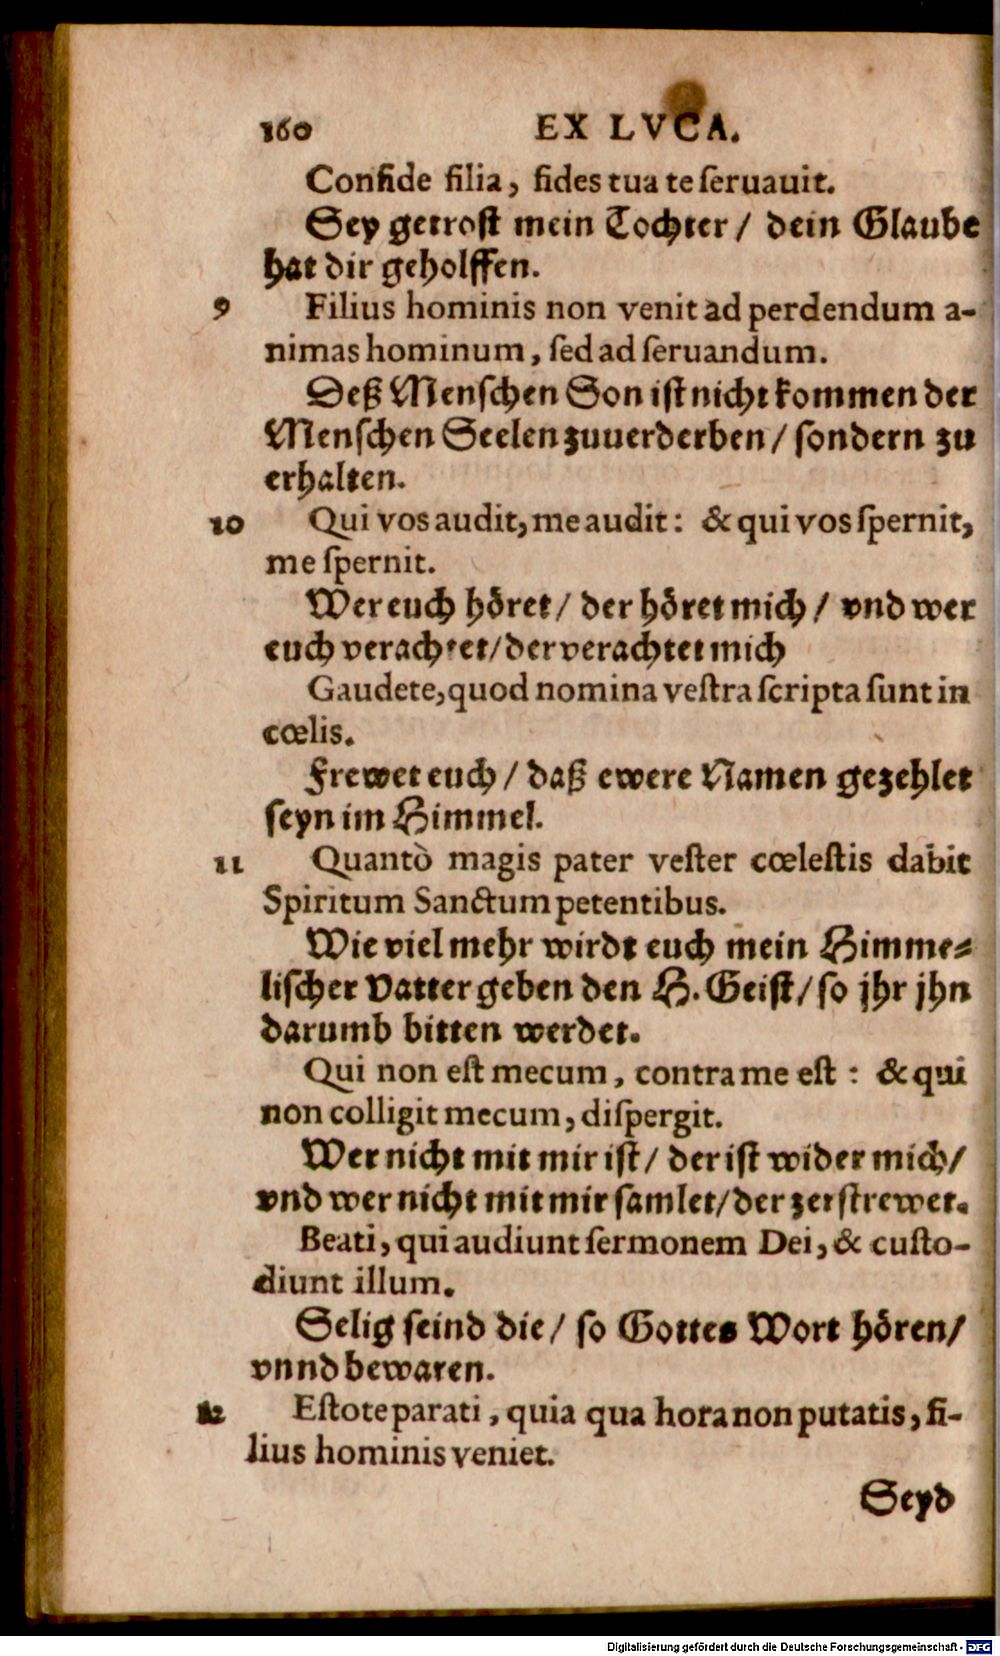 160 EX LVCA.
Confide filia, fides tua te ſeruauit.
Sey getroſt mein Tochter / dein Glaube
hat dir geholffen.
9 Filius hominis non venit ad perdendum a-
nimas hominum, ſed ad ſeruandum.
Deß Menſchen Son iſt nicht kommen der
Menſchen Seelen zuuerderben / ſondern zu
erhalten.
10 Qui vos audit, me audit: & qui vos ſpernit,
me ſpernit.
Wer euch höret / der höret mich / vnd wer
euch verachtet / der verachtet mich
Gaudete, quod nomina veſtra ſcripta ſunt in
cœlis.
Frewet euch / daß ewere Namen gezehlet
ſeyn im Himmel.
11 Quantò magis pater veſter cœleſtis dabit
Spiritum Sanctum petentibus.
Wie viel mehr wirdt euch mein Himme-
liſcher Vatter geben den H. Geiſt / ſo jhr jhn
darumb bitten werdet.
Qui non eſt mecum, contra me eſt: & qui
non colligit mecum, diſpergit.
Wer nicht mit mir iſt / der iſt wider mich /
vnd wer nicht mit mir ſamlet / der zerſtrewet.
Beati, qui audiunt ſermonem Dei, & cuſto-
diunt illum.
Selig ſeind die / ſo Gottes Wort hören /
vnnd bewaren.
12 Eſtote parati, quia qua hora non putatis, fi-
lius hominis veniet.
Seyd
Digitalisierung gefördert durch die Deutsche Forschungsgemeinschaft - DFG